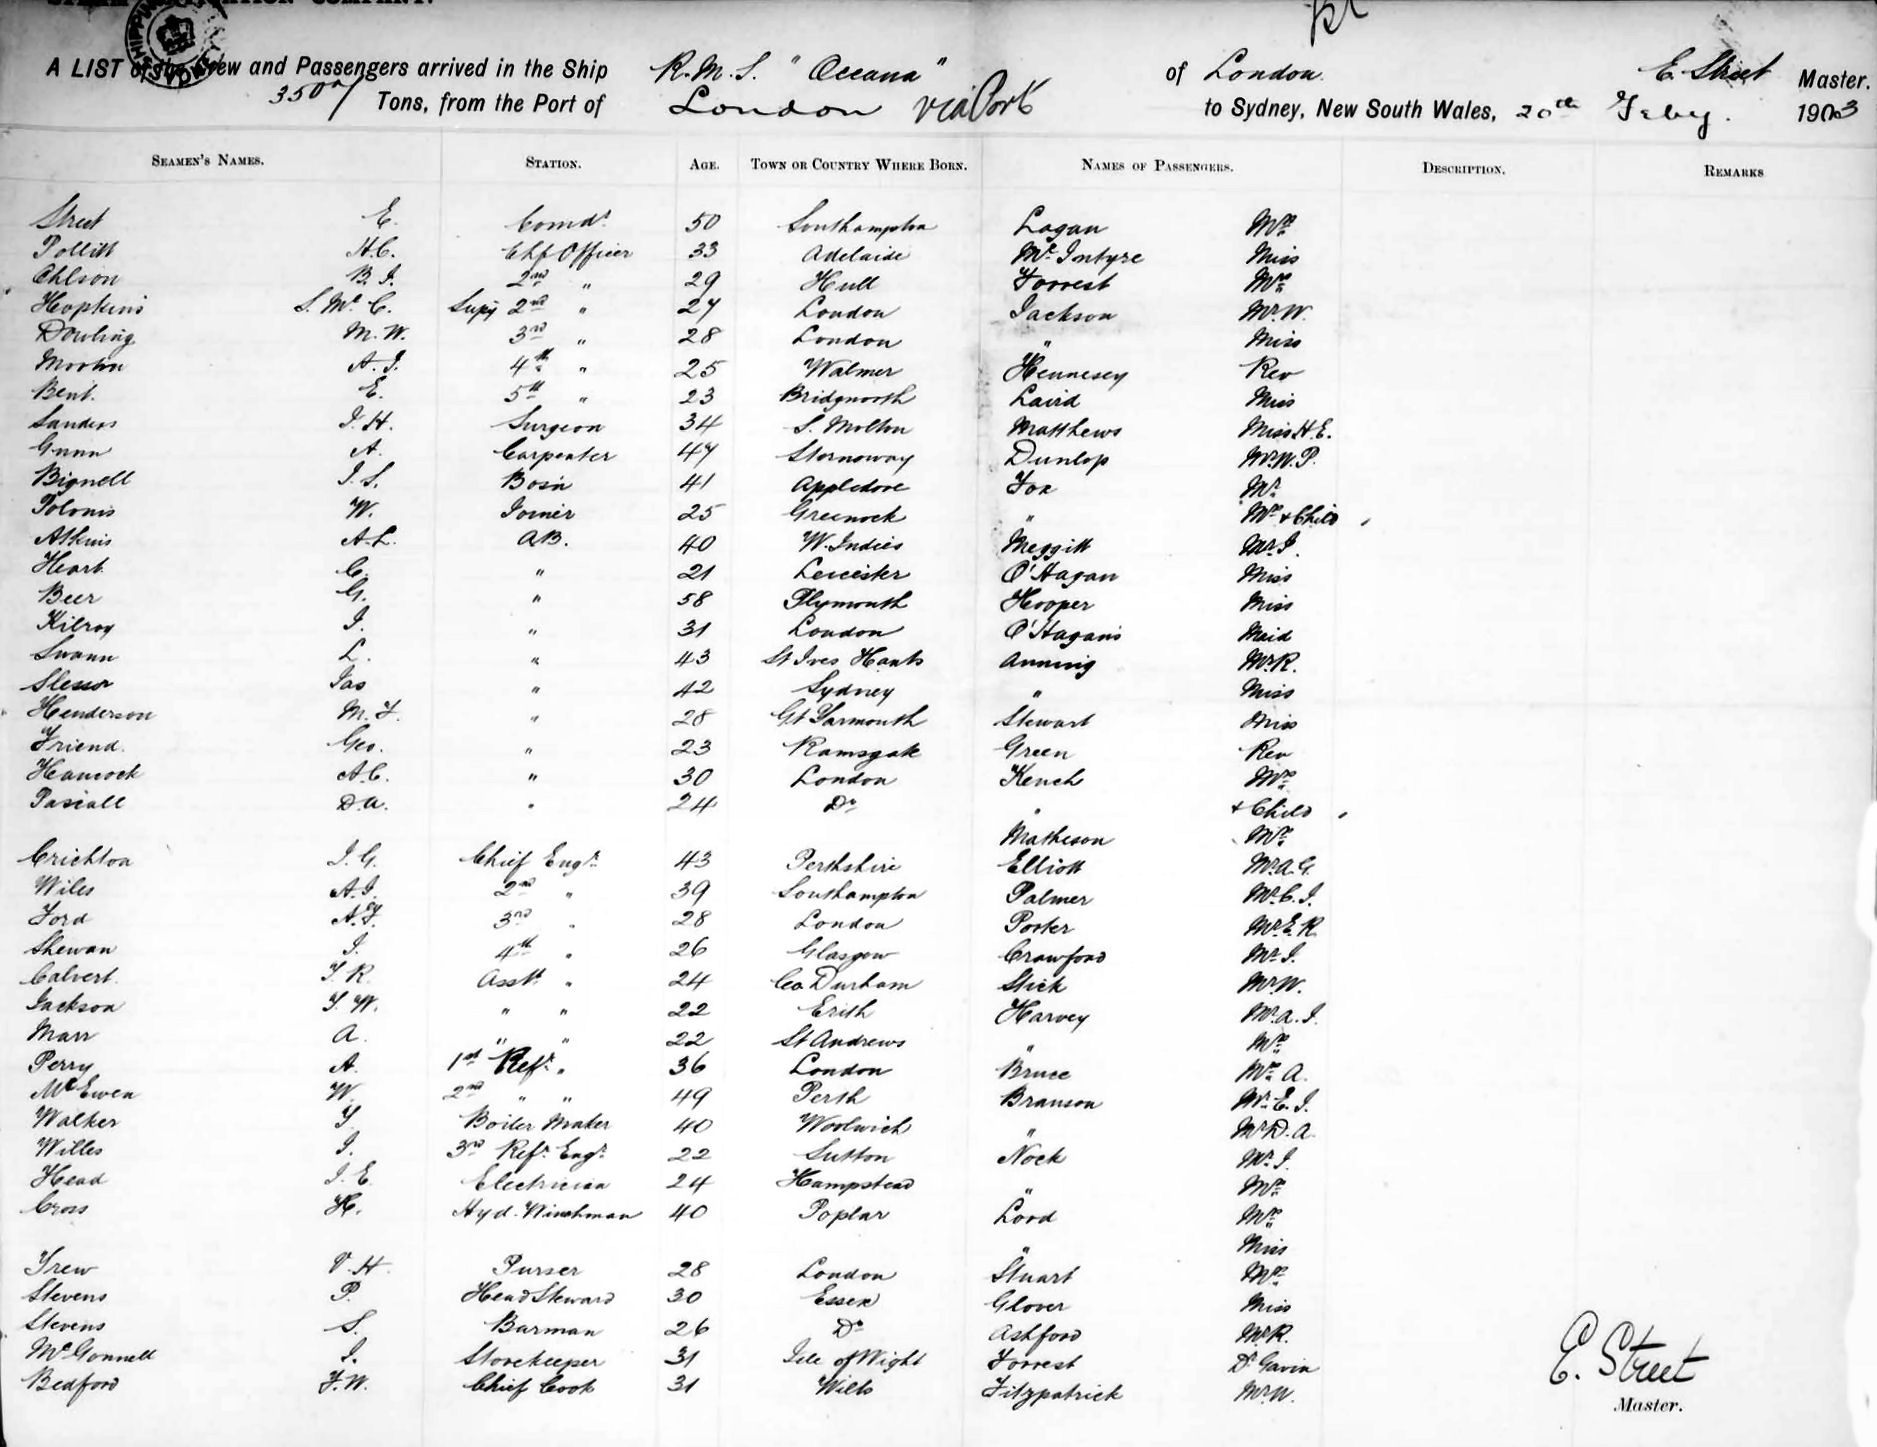 COMPANY.
A LIST of the Crew and Passengers arrived in the Ship R.M.S. "Oceana" of London E. Street Master.
Tons, from the Port of London via Port to Sydney, New South Wales, 20th Feby. 1903
SEAMEN'S NAMES. STATION. AGE. TOWN OR COUNTRY WHERE BORN. NAMES OF PASSENGERS. DESCRIPTION. REMARKS
Street E. Comdr 50 Southampton Logan Mrs
Pollitt H.C. Chf Officer 33 Adelaide McIntyre Miss
Ohlson B.J. 2nd " 29 Hull Forrest Mrs
Hopkins S. Mc C. Supy 2nd " 27 London Jackson Mr W.
Dowling M.W. 3rd " 28 London " Miss
Morton A.J. 4th " 25 Walmer Hennesey Rev
Bent. E. 5th " 23 Bridgnorth Laird Miss
Sanders J.H. Surgeon 34 S. Molton Matthews Miss H.E.
Gunn A. Carpenter 47 Stornoway Dunlop Mr W.P.
Bignell J.S. Bosn 41 Appledore Fox Mr
W. Joiner 25 Greenock " Mrs & Child
Atkins A.L. AB. 40 W. Indies Meggitt Mr J.
Heart C. " 21 Leicester O'Hagan Miss
Beer G. " 58 Plymouth Hooper Miss
Kilroy J. " 31 London O'Hagan's Maid
Swann L. " 43 St Ives Hants Anning Mr R.
Slessor Jas " 42 Sydney " Miss
Henderson M.F. " 28 Gt Yarmouth Stewart Miss
Friend. Geo. " 23 Ramsgate Green Rev
Hancock A.C. " 30 London Kench Mrs
Pascall D.A. " 24 Do " & Child
Matheson Mrs
Crichton J.G. Chief Engr 43 Perthshire Elliott Mr A.G.
Wiles A.J. 2nd " 39 Southampton Palmer Mr C.J.
Ford 3rd " 28 London Porter Mr E.R.
Shewan J. 4th " 26 Glasgow Crawford Mr J.
Calvert. T.R. Asst " 24 Co Durham Stick Mr W.
Jackson T.W. " " 22 Erith Harvey Mr A.J.
Marr A. " " 22 St Andrews " Mrs
Perry A. 1st Refr " 36 London Bruce Mrs A.
McEwen W. 2nd " " 49 Perth Branson Mr E.J.
Walker T. Boiler Maker 40 Woolwich " Mr D.A.
Willes J. 3rd Refr Engr 22 Sutton Nock Mr J.
Head J.E. Electrician 24 Hampstead " Mrs
Cross H. Hyd. Winchman 40 Poplar Lord Mrs
" Miss
Trew V.H. Purser 28 London Stuart Mrs
Stevens P. Head Steward 30 Essex Glover Miss
Stevens S. Barman 26 Do Ashford Mr R.
McGonnell J. Storekeeper 31 Isle of Wight Forrest Dr Gavin
Bedford F.W. Chief Cook 31 Wilts Fitzpatrick Mr W.
E. Street
Master.